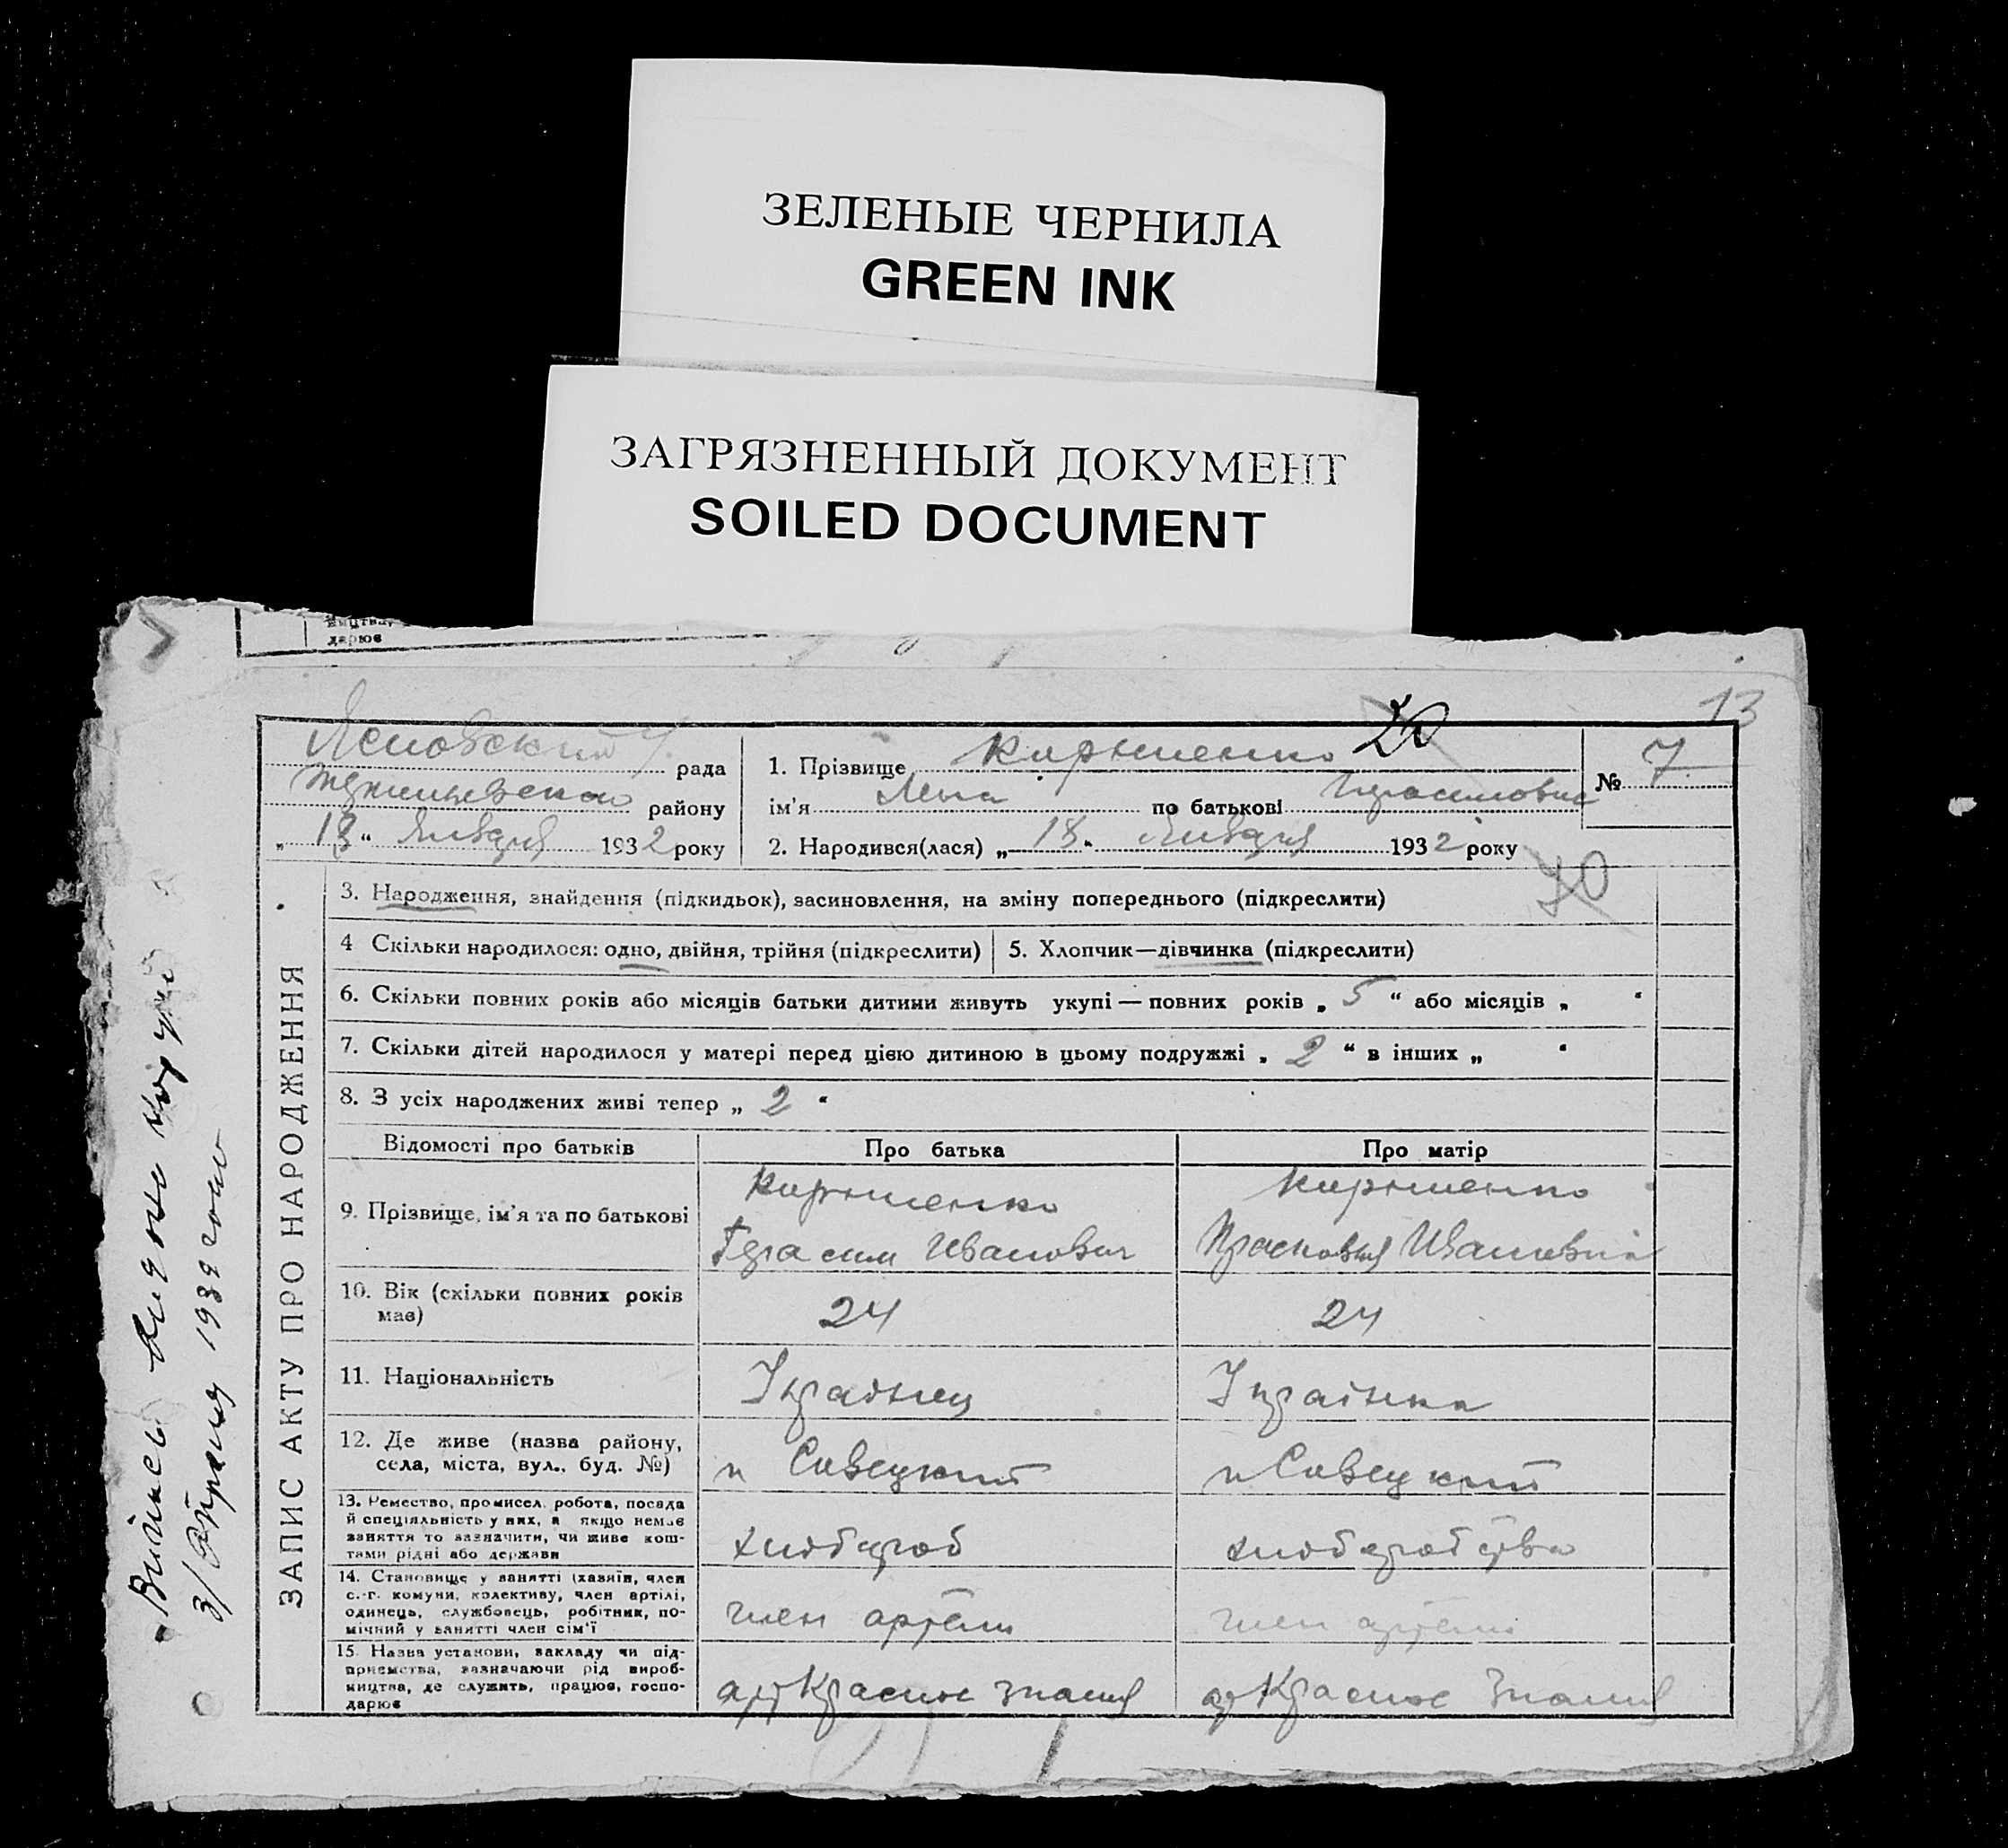 ЗЕЛЕНЫЕ ЧЕРНИЛА
GREEN INK
ЗАГРЯЗНЕННЫЙ ДОКУМЕНТ
SOILED DOCUMENT
ництва,
дарює
13
20
рада
району
„ 18 “ Января 1932 року
1. Прізвище Кирьменко
ім'я по батькові Герасимовна
2. Народився(лася) „ 18 “ Января 1932 року
№ 7
ЗАПИС АКТУ ПРО НАРОДЖЕННЯ
3. Народження, знайдення (підкидьок), засиновлення, на зміну попереднього (підкреслити)
4 Скільки народилося: одно, двійня, трійня (підкреслити)
5. Хлопчик—дівчинка (підкреслити)
6. Скільки повних років або місяців батьки дитини живуть укупі — повних років „ 5 “ або місяців „ “
7. Скільки дітей народилося у матері перед цією дитиною в цьому подружжі „ 2 “ в інших „ “
8. З усіх народжених живі тепер „ 2 “
Відомості про батьків
Про батька
Про матір
9. Прізвище, ім'я та по батькові
Кирьменко
Герасим Иванович
Кирьменко
Прасковья Ивановна
10. Вік (скільки повних років
має)
24
24
11. Національність
Українец
Українка
12. Де живе (назва району,
села, міста, вул., буд. №)
п Савецкий
п Савецкий
13. Ремество, промисел, робота, посада
й спеціяльність у них, а якщо немає
заняття то зазначити, чи живе кош-
тами рідні або держави
хлебороб
14. Становище у занятті (хазяїн, член
с.-г. комуни, колективу, член артілі,
одинець, службовець, робітник, по-
мічний у занятті член сім'ї
член артели
член артели
15. Назва установи, закладу чи під-
приємства, зазначаючи рід вироб-
ництва, де служить, працює, госпо-
дарює
арт Красное знамя
ар Красное Знамя
3/ Апреля 1932 года